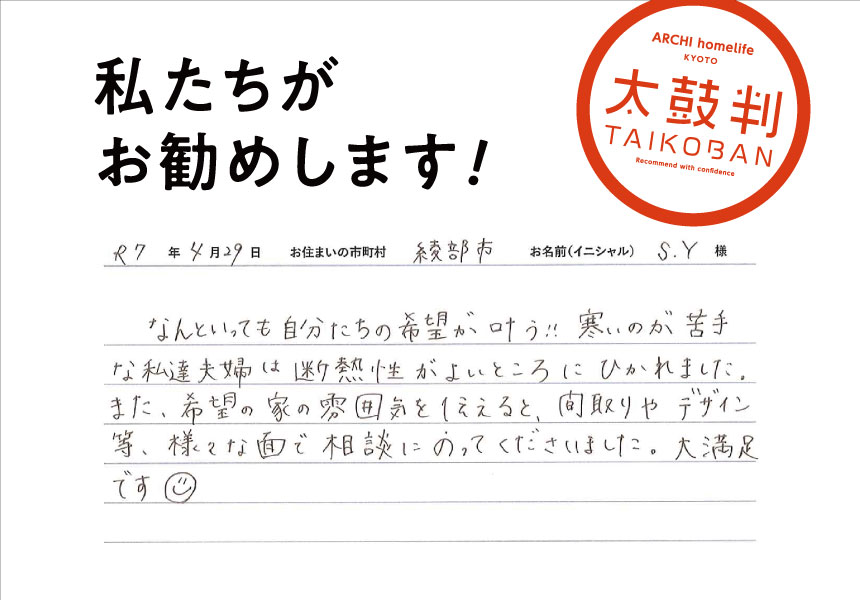 私たちが
お勧めします！
ARCHI homelife
KYOTO
太鼓判
TAIKOBAN
Recommend with confidence
R7 年 4 月 29 日 お住まいの市町村 綾部市 お名前（イニシャル） S.Y 様
なんといっても自分たちの希望が叶う!! 寒いのが苦手
な私達夫婦は断熱性がよいところにひかれました。
また、希望の家の雰囲気を伝えると、間取りやデザイン
等、様々な面で相談にのってくださいました。大満足
です☺